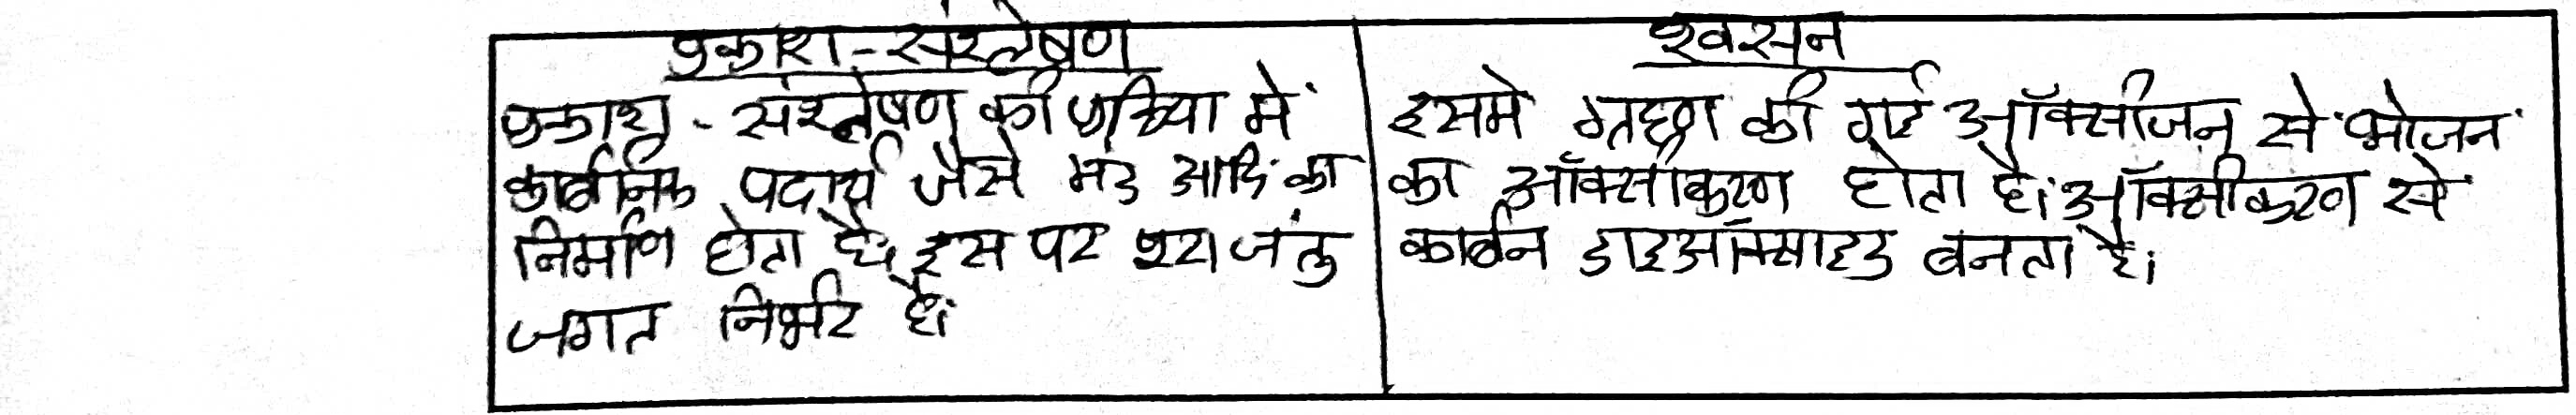 प्रकाश-संश्लेषण
प्रकाश-संश्लेषण की प्रक्रिया में
कार्बनिक पदार्थ जैसे मंड आदि का
निर्माण होता है। इस पर पूरा जंतु
जगत निर्भर है।
श्वसन
इसमे ग्रहण की गई ऑक्सीजन से भोजन
का ऑक्सीकरण होता है। ऑक्सीकरण से
कार्बन डाइऑक्साइड बनता है।